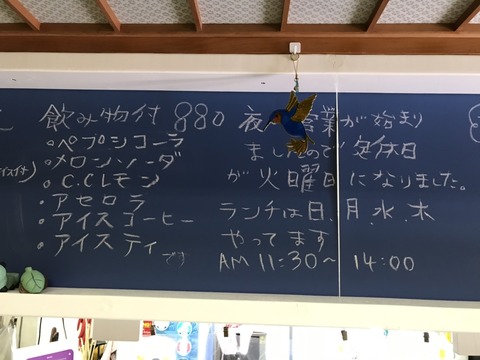 飲み物付 880
・ペプシコーラ
・メロンソーダ
・C.Cレモン
・アセロラ
・アイスコーヒー
・アイスティ
です
夜の営業が始まり
ましたので 定休日
が火曜日になりました。
ランチは日、月、水、木
やってます
AM 11:30〜 14:00